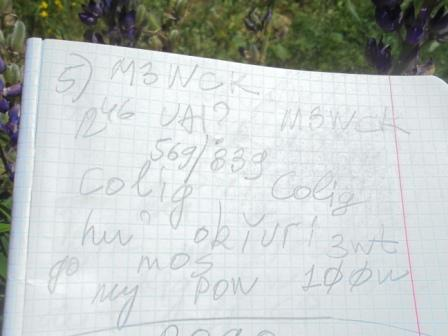 5) M3WCK
12⁴⁶ UA1? M3WCK
569/339
Colig Colig
hw? 3wt
go mos
my pow 1ØØw